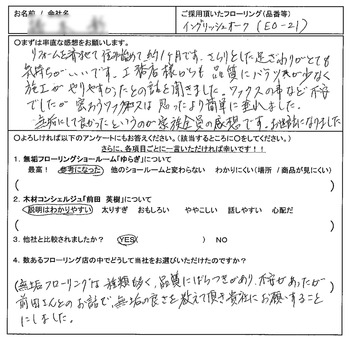 お名前 / 会社名
ご採用頂いたフローリング(品番等)
イングリッシュオーク (EO-21)
○まずは率直な感想をお願いします。
リフォームを済ませて住み始めて約1ヶ月です。さらりとした足ざわりがとても
気持ちがいいです。工務店様からも品質にバラツキが少なく
施工がやりやすかったとの話を聞きました。ワックスの事など不安
でしたが蜜ろうワックスは思ったより簡単に塗れました。
無垢にして良かったというのが家族全員の感想です。お世話になりました
○よろしければ以下のアンケートにもお答えください。(該当するところに○をしてください。)
さらに、各項目ごとに一言いただければ幸いです!!
1. 無垢フローリングショールーム「ゆらぎ」について
最高! 参考になった 他のショールームと変わらない わかりにくい(場所 / 商品が見にくい)
2. 木材コンシェルジュ「前田 英樹」について
説明はわかりやすい 太りすぎ おもしろい ややこしい 話しやすい 心配だ
3. 他社と比較されましたか? YES NO
4. 数あるフローリング店の中でどうして当社をお選びいただけたのですか?
無垢フローリングは種類が多く、品質にばらつきがあり、不安があったが
前田さんとのお話で無垢の良さを教えて頂き貴社にお願いすること
にしました。